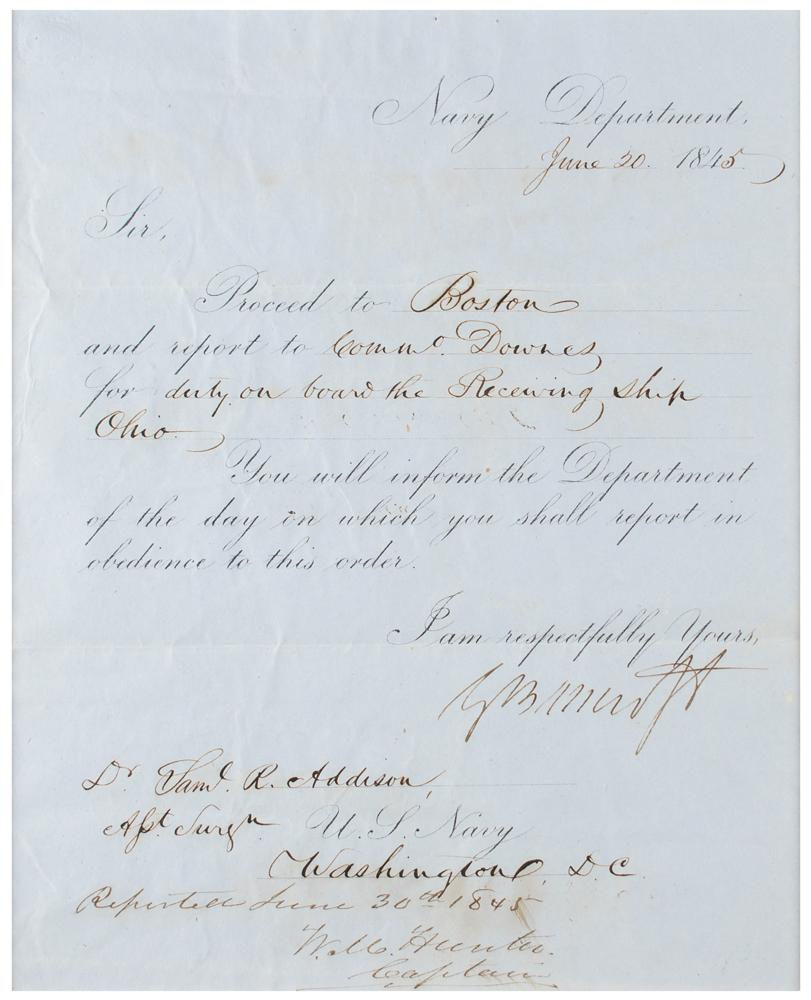 Navy Department,
June 20. 1845.
Sir,
Proceed to Boston
and report to Commo. Downes
for duty on board the Receiving ship
Ohio.
You will inform the Department
of the day on which you shall report in
obedience to this order.
I am respectfully Yours,
G Bancroft
Dr Saml. R. Addison,
Asst. Surgn. U. S. Navy
Washington, D.C.
Reported June 30th 1845
W. M. Hunter.
Captain